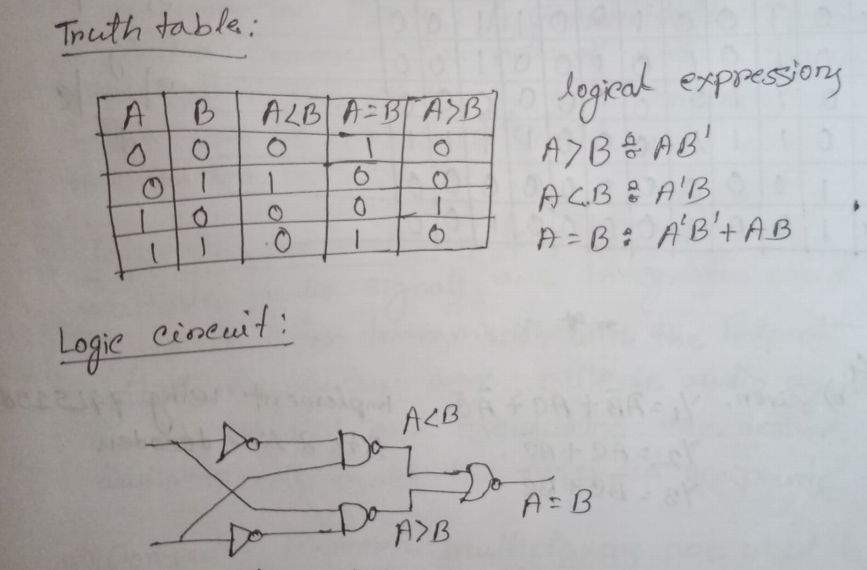 Truth table:
A B A<B A=B A>B
0 0 0 1 0
0 1 1 0 0
1 0 0 0 1
1 1 0 1 0
logical expressions
A>B : AB'
A<B : A'B
A=B : A'B'+AB
Logic circuit:
A<B
A>B
A=B